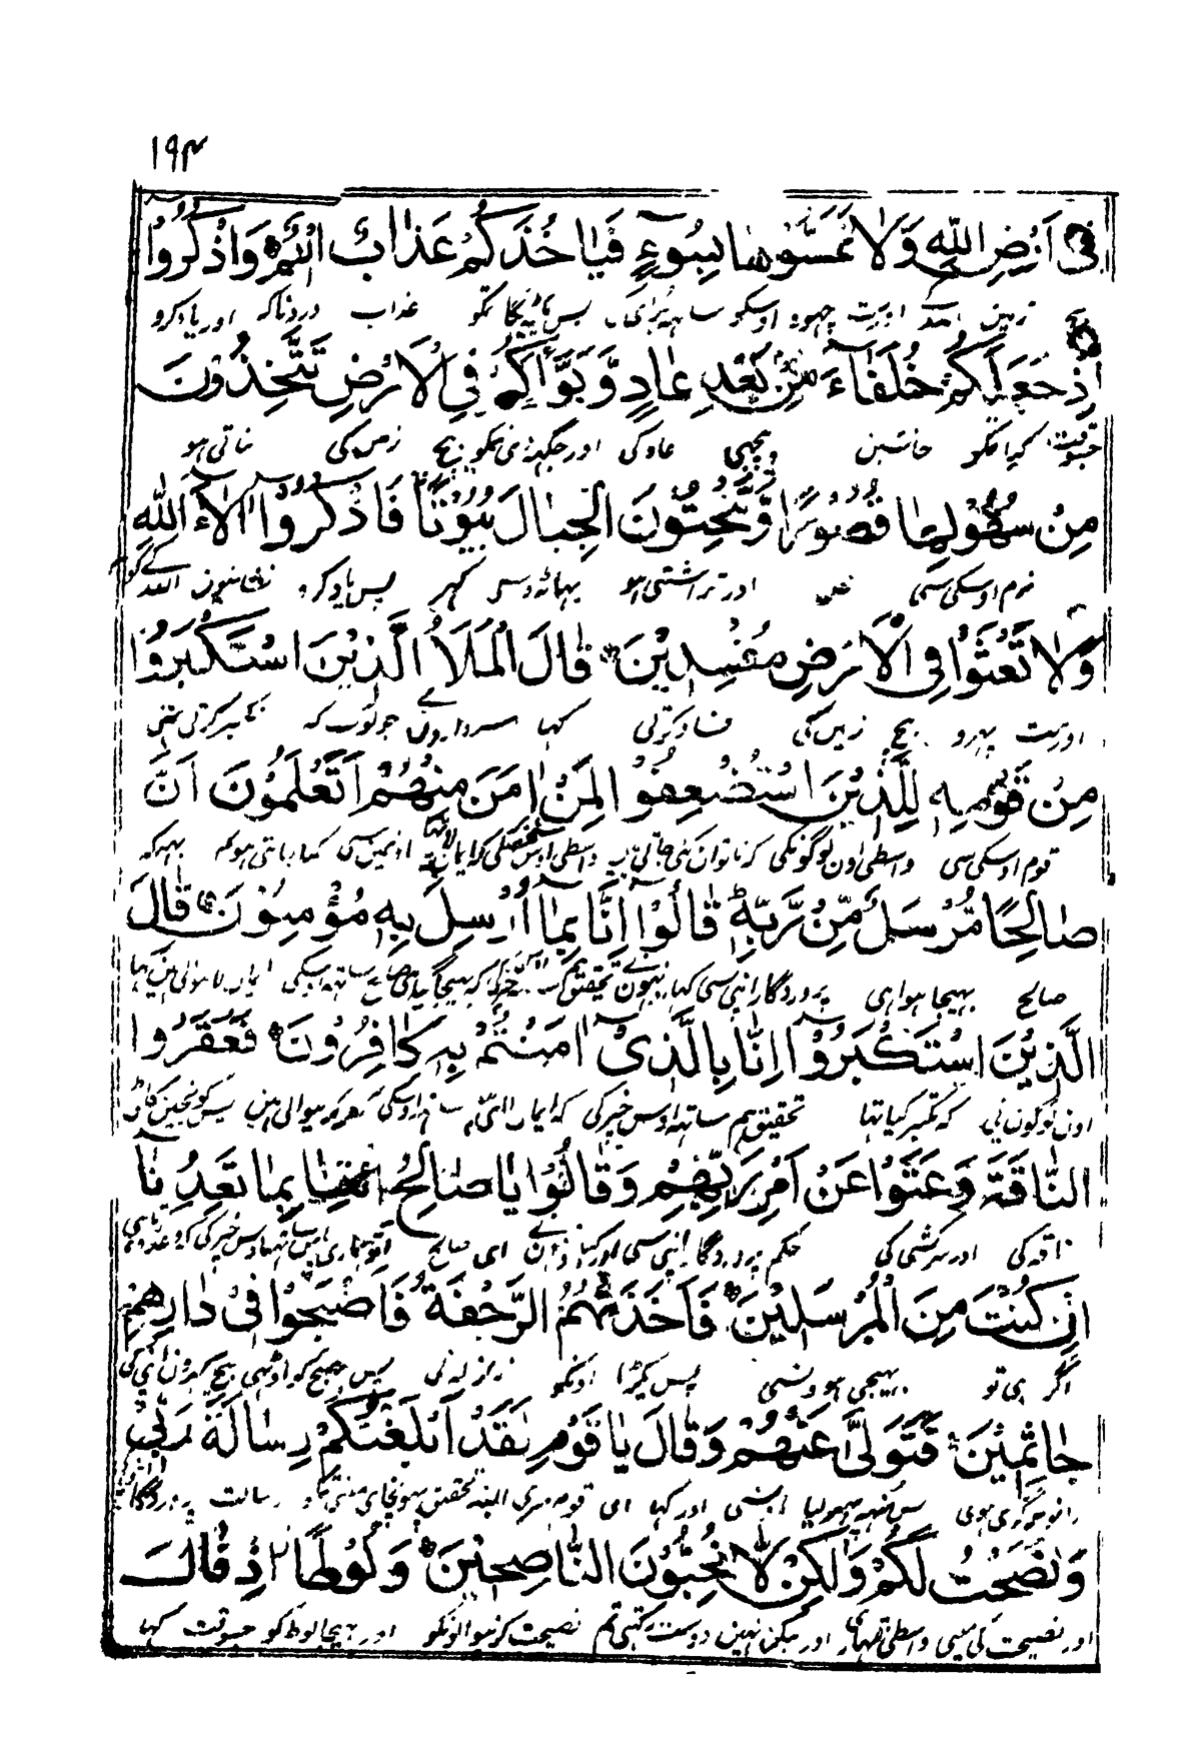 ۱۹۳
فِیْ اَرْضِ اللّٰهِ وَلَا تَمَسُّوْهَا بِسُوْٓءٍ فَیَاْخُذَكُمْ عَذَابٌ اَلِیْمٌ وَاذْكُرُوْا
زمین اللہ اور مت چہوو اوسکو ساتہہ برائی پس پکڑیگا تمکو عذاب دردناک اور یاد کرو
اِذْ جَعَلَكُمْ خُلَفَآءَ مِنْۢ بَعْدِ عَادٍ وَّ بَوَّاَكُمْ فِی الْاَرْضِ تَتَّخِذُوْنَ
جسوقت کیا تمکو جانشین پیچہی عاد کی اور جگہہ دی تمکو بیچ زمین کی بناتی ہو
مِنْ سُهُوْلِهَا قُصُوْرًا وَّ تَنْحِتُوْنَ الْجِبَالَ بُیُوْتًا فَاذْكُرُوْٓا اٰلَآءَ اللّٰهِ
نرم اوسکی سی اور تراشتی ہو پہاڑ گہر پس یاد کرو اللہ کے کو
وَلَا تَعْثَوْا فِی الْاَرْضِ مُفْسِدِیْنَ قَالَ الْمَلَاُ الَّذِیْنَ اسْتَكْبَرُوْا
اور مت پہرو بیچ زمین کی فساد کرتی کہا سرداروں نے جو لوگ کہ تکبر کرتی تہی
مِنْ قَوْمِهٖ لِلَّذِیْنَ اسْتُضْعِفُوْا لِمَنْ اٰمَنَ مِنْهُمْ اَتَعْلَمُوْنَ اَنَّ
قوم اوسکی سی واسطی اون لوگونکی کہ ناتوان گنی جاتی واسطی اوس شخص کی کہ ایمان لایا تہا اونمین سی کیا جانتی ہو تم یہہ کہ
صَالِحًا مُّرْسَلٌ مِّنْ رَّبِّهٖ قَالُوْٓا اِنَّا بِمَآ اُرْسِلَ بِهٖ مُؤْمِنُوْنَ قَالَ
صالح بہیجا ہوا ہی پروردگار اپنی سی کہا اونہون نے تحقیق ہم ساتہہ اوس چیز کی کہ بہیجا گیا ہی صالح ساتہہ اوسکی ایمان لانیوالی ہین کہا
الَّذِیْنَ اسْتَكْبَرُوْٓا اِنَّا بِالَّذِیْٓ اٰمَنْتُمْ بِهٖ كَافِرُوْنَ فَعَقَرُوا
اون لوگون نی کہ تکبر کیا تہا تحقیق ہم ساتہہ اوس چیز کی کہ ایمان لائی ساتہہ اوسکی ہین پس کونچین کاٹین
النَّاقَةَ وَعَتَوْا عَنْ اَمْرِ رَبِّهِمْ وَقَالُوْا یَا صَالِحُ ائْتِنَا بِمَا تَعِدُنَآ
ناقہ کی اور سرکشی کی حکم پروردگار اپنی سی اور کہا اے صالح
اِنْ كُنْتَ مِنَ الْمُرْسَلِیْنَ فَاَخَذَتْهُمُ الرَّجْفَةُ فَاَصْبَحُوْا فِیْ دَارِهِمْ
اگر ہی تو بہیجی ہوونسی پس پکڑا اونکو زلزلہ نی پس صبح کو اوٹہی بیچ گہرون اپنی کی
جَاثِمِیْنَ فَتَوَلّٰی عَنْهُمْ وَقَالَ یَا قَوْمِ لَقَدْ اَبْلَغْتُكُمْ رِسَالَةَ رَبِّیْ
زانو پر گری ہوی پس منہہ پہیر لیا اونسی اور کہا ای قوم میری البتہ تحقیق پہونچائی مینی تمکو رسالت پروردگار
وَنَصَحْتُ لَكُمْ وَلٰكِنْ لَّا تُحِبُّوْنَ النَّاصِحِیْنَ وَلُوْطًا اِذْ قَالَ
اور نصیحت کی مینی واسطی تمہاری اور لیکن نہین دوست رکہتی تم نصیحت کرنیوالونکو اور بہیجا لوط کو جسوقت کہا